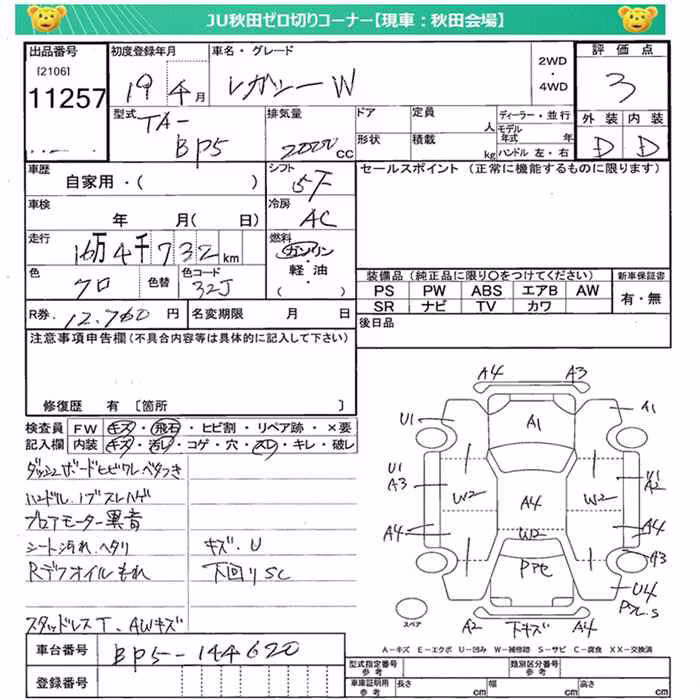 JU秋田ゼロ切りコーナー【現車：秋田会場】
出品番号 初度登録年月 車名・グレード 2WD・4WD 評価点
[2106] 11257 19年 月 レガシーW 3
型式 TA-BP5 排気量 2000cc ドア 定員 人 ディーラー・並行 外装 内装
形状 積載 kg モデル年式 年 ハンドル 左・右 D D
車歴 自家用・( ) シフト 5F セールスポイント (正常に機能するものに限ります)
車検 年 月(日) 冷房 AC
走行 16万4千732km 燃料 ガソリン・軽油・( )
色 クロ 色替 色コード 32J 装備品(純正品に限り○をつけてください) 新車保証書
PS PW ABS エアB AW 有・無
SR ナビ TV カワ
R券. 12,760円 名変期限 月 日 後日品
注意事項申告欄(不具合内容等は具体的に記入して下さい)
修復歴 有 [箇所 ]
検査員 FW キズ・飛石・ヒビ割・リペア跡・×要
記入欄 内装 キズ・汚レ・コゲ・穴・スレ・キレ・破レ
ダッシュボードヒビワレベタつき
ハンドル.ノブスレハゲ
ブロアモーター異音
シート汚れ.ヘタリ キズ.U
Rデフオイルもれ 下回りSC
スタッドレスT.AWキズ
A4 A3
U1 A1 A1
U1 A3 U1 A2
W2 A4 W2
A4 W2 A4
A3
U4
スペア A2 下キズ A4
A-キズ E-エクボ U-凹み W-補修跡 S-サビ C-腐食 XX-交換済
車台番号 BP5-144620
登録番号
型式指定番号 参考 類別区分番号 参考
車庫証明用 参考 長さ cm 幅 cm 高さ cm